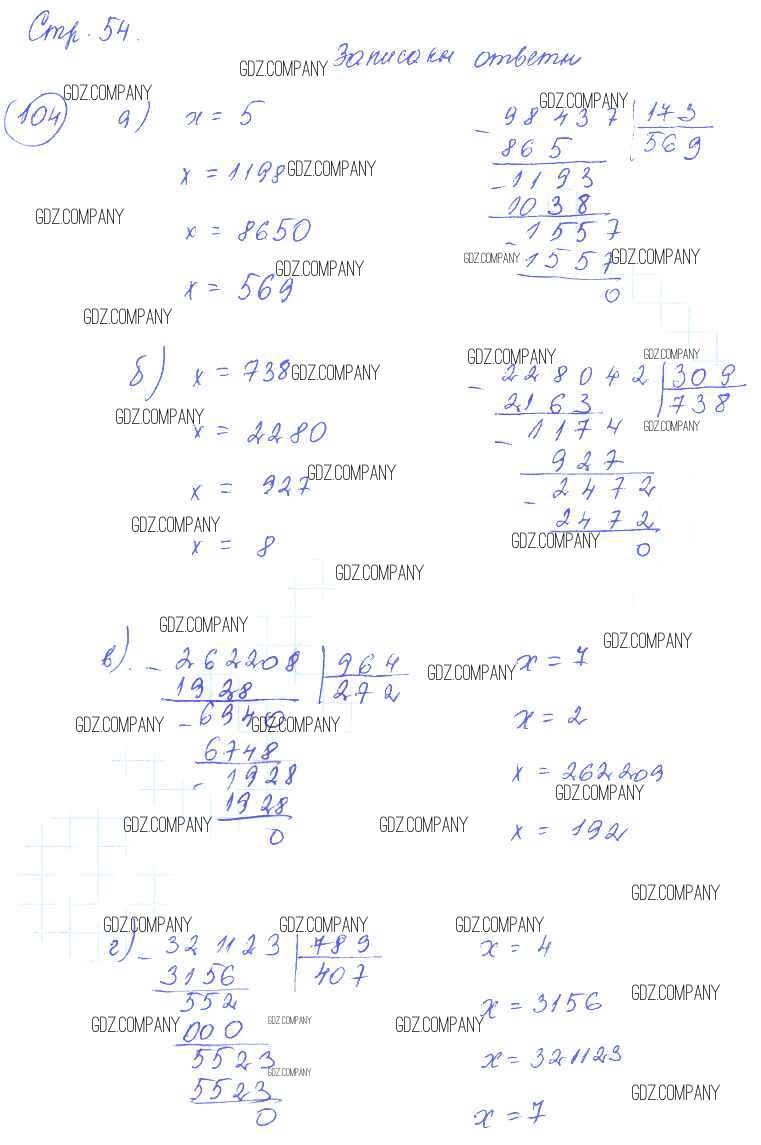 Стр. 54.
Записаны ответы
GDZ.COMPANY
GDZ.COMPANY GDZ.COMPANY
104 а) x = 5
x = 1198 GDZ.COMPANY
GDZ.COMPANY
x = 8650
GDZ.COMPANY
x = 569
GDZ.COMPANY
- 98437 | 173
865 | 569
- 1193
1038
- 1557
GDZ.COMPANY 1557 GDZ.COMPANY
0
б) x = 738 GDZ.COMPANY
GDZ.COMPANY
x = 2280
GDZ.COMPANY
x = 927
GDZ.COMPANY
x = 8
GDZ.COMPANY
GDZ.COMPANY GDZ.COMPANY
- 228042 | 309
2163 | 738
- 1174 GDZ.COMPANY
927
- 2472
2472
GDZ.COMPANY
0
GDZ.COMPANY
в). - 262208 | 964
1928 | 272
- 6940
GDZ.COMPANY GDZ.COMPANY
6748
- 1928
1928
GDZ.COMPANY GDZ.COMPANY
0
GDZ.COMPANY
GDZ.COMPANY x = 7
x = 2
x = 262209
GDZ.COMPANY
x = 192
GDZ.COMPANY
GDZ.COMPANY GDZ.COMPANY GDZ.COMPANY
г) - 321123 | 789
3156 | 407
552
GDZ.COMPANY GDZ.COMPANY GDZ.COMPANY
000
5523
GDZ.COMPANY
5523
0
x = 4
x = 3156 GDZ.COMPANY
x = 321123
GDZ.COMPANY
x = 7